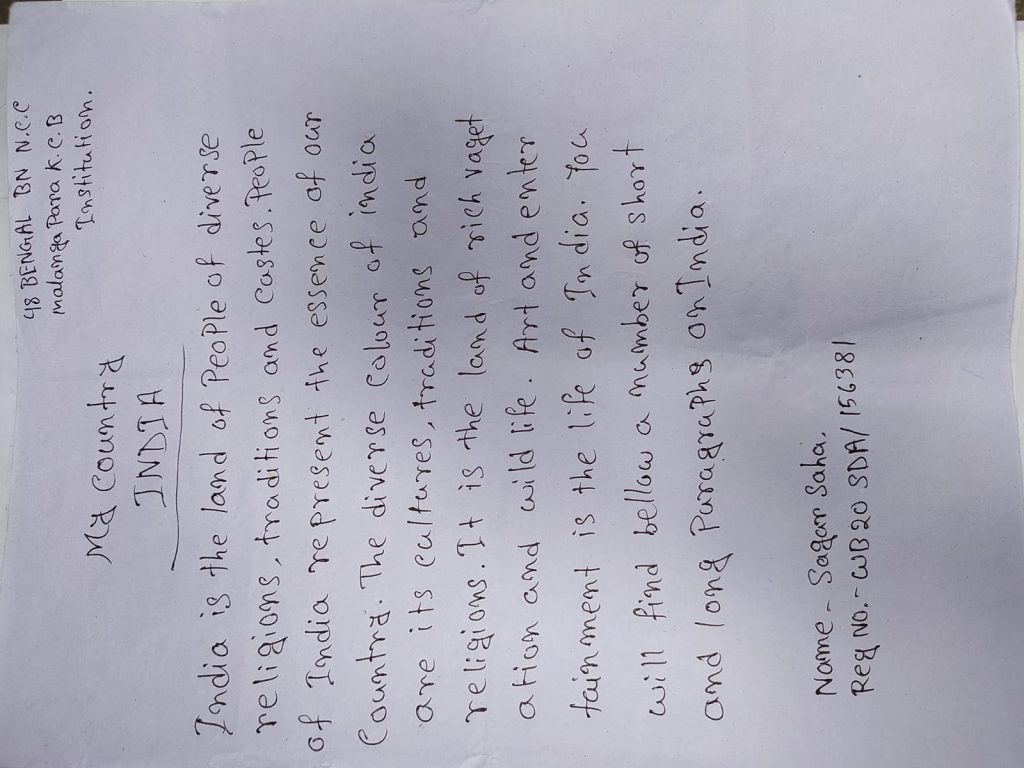 48 BENGAL BN N.C.C
Malanga Para K.C.B
Institution.
My Country
INDIA
India is the land of People of diverse
religions, traditions and castes. People
of India represent the essence of our
Country. The diverse colour of india
are its cultures, traditions and
religions. It is the land of rich vaget
ation and wild life. Art and enter
tainment is the life of India. You
will find bellow a number of short
and long Paragraphs on India.
Name - Sagar Saha.
Reg No. - WB20 SDA/156381